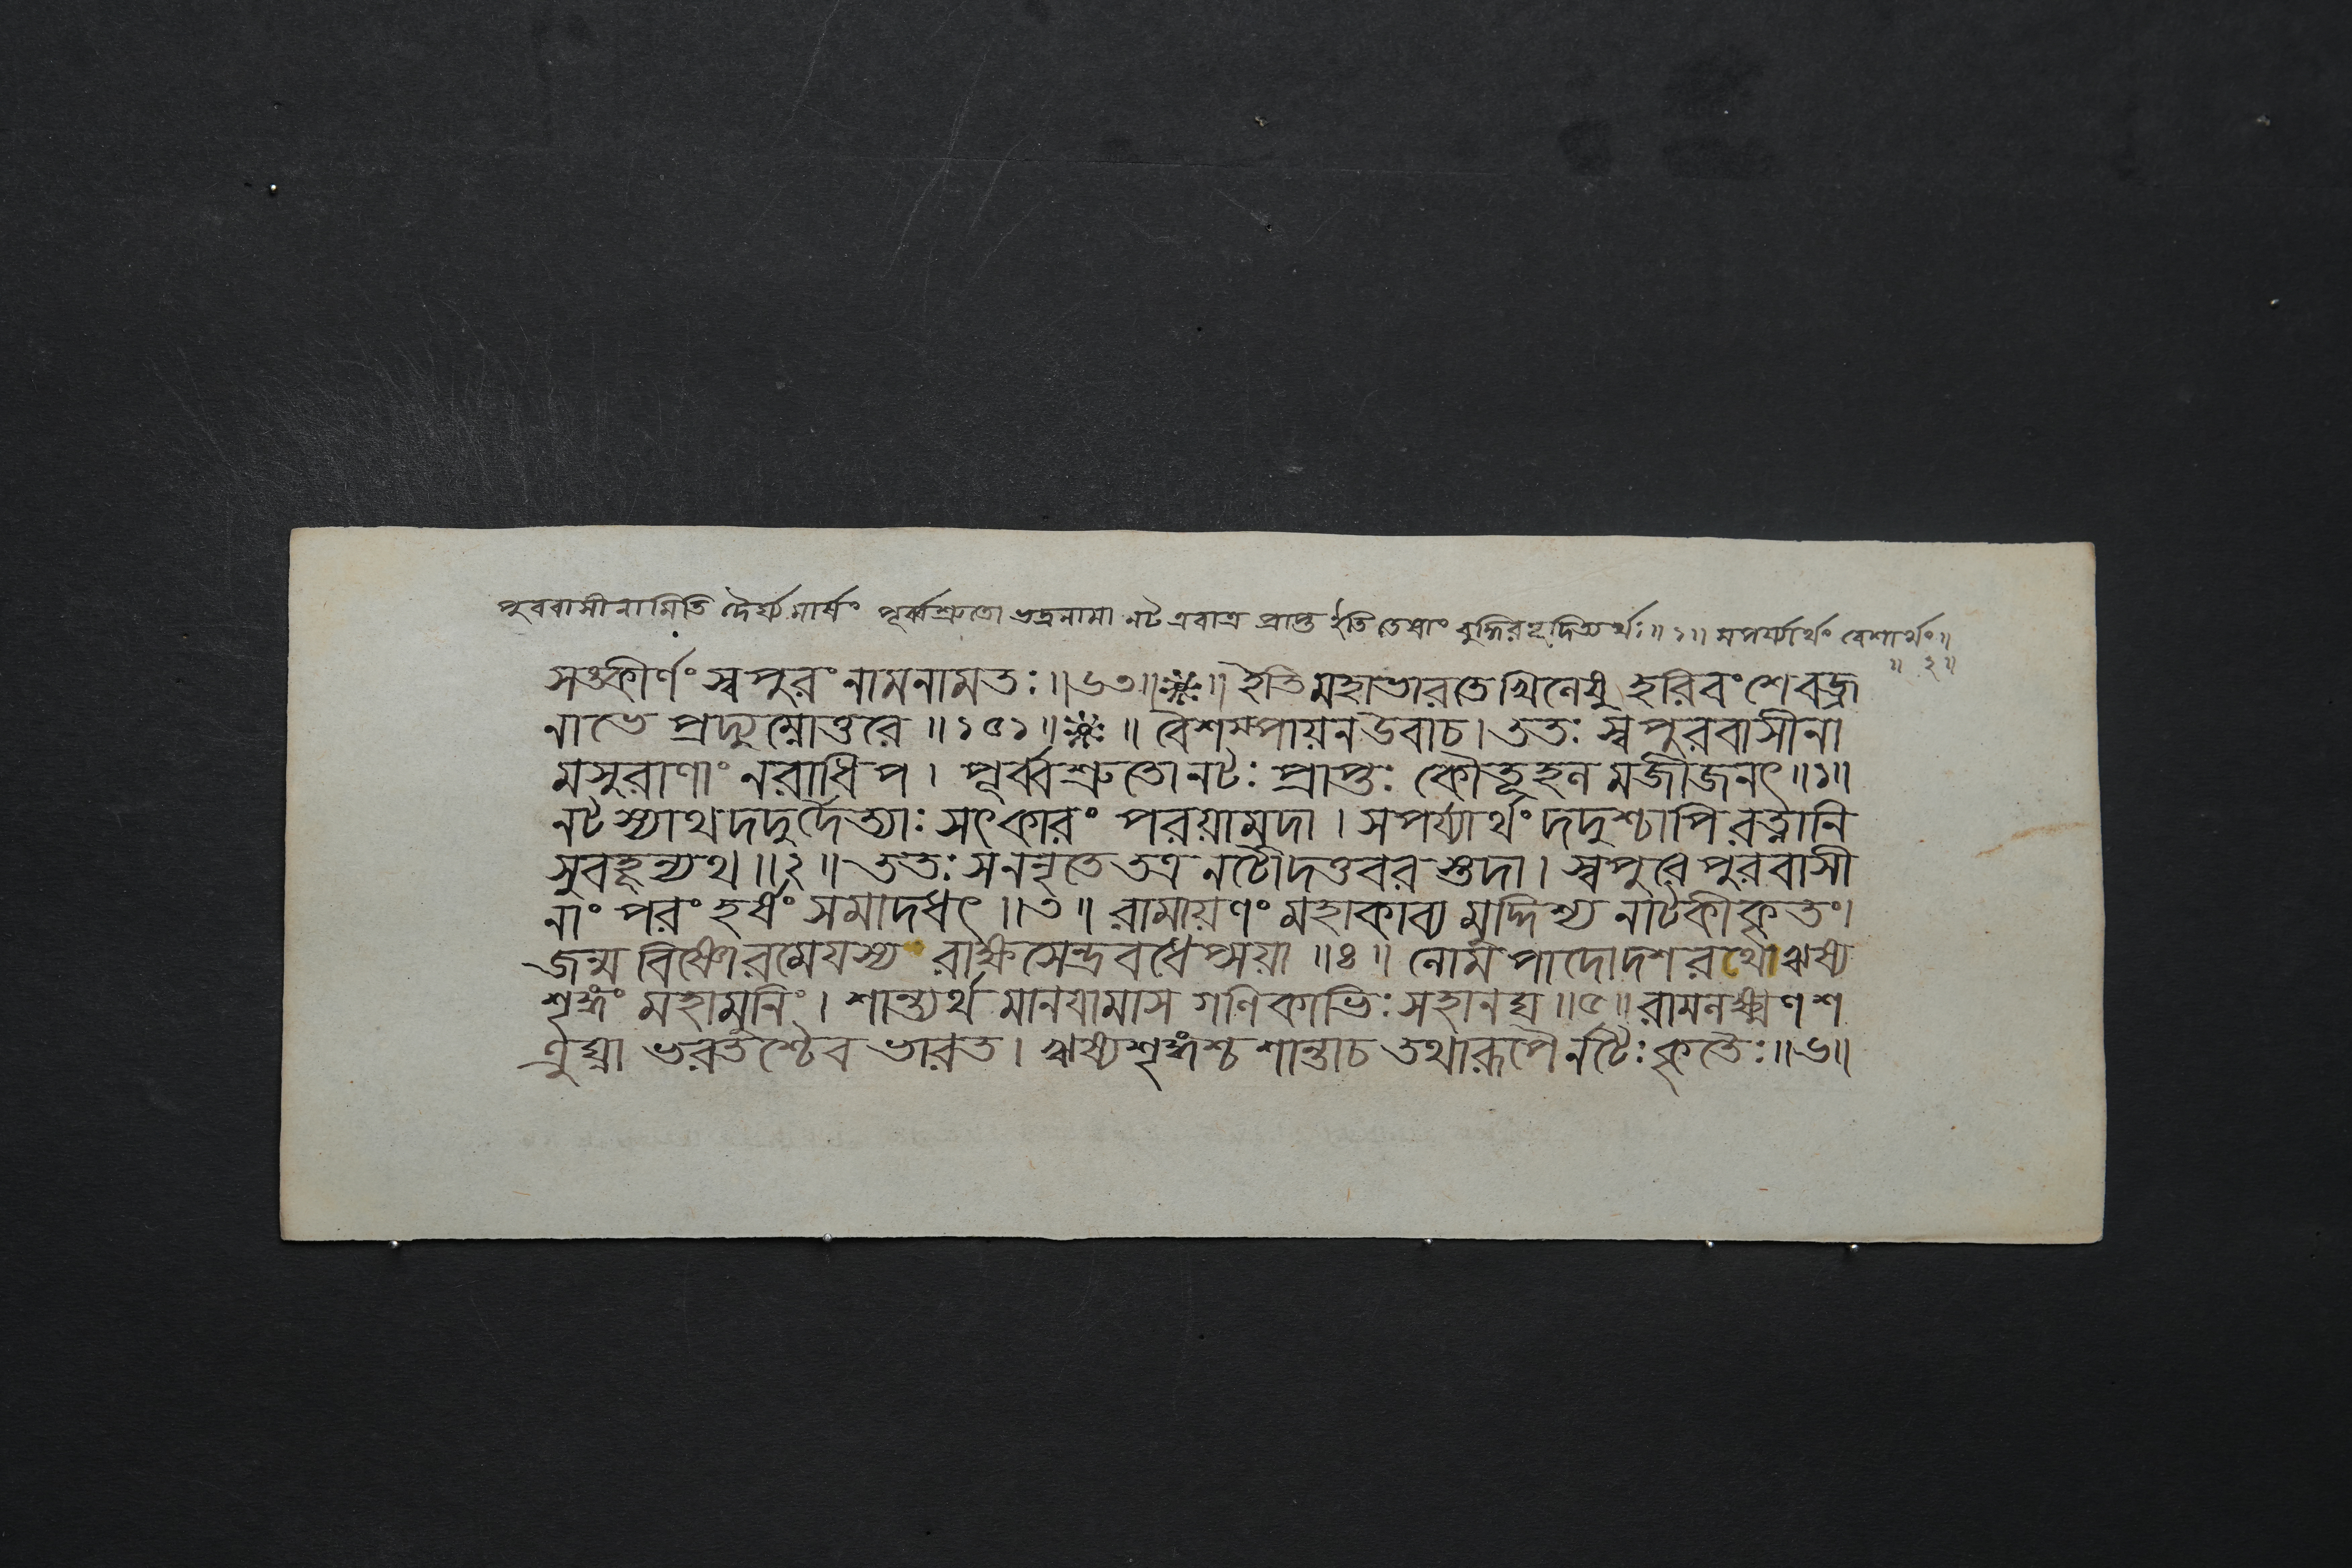 পুরবাসীনামিতি দৈর্ঘ্যমার্ষং পূর্ব্বশ্রুতো ভদ্রনামা নট এবাত্র প্রাপ্ত ইতি তেষাং বুদ্ধিরভূদিত্যর্থঃ॥১॥ সপর্য্যার্থং বেশার্থং॥
॥ ২॥
সঙ্কীর্ণং স্বপুরং নামনামতঃ॥৬৩॥❈॥ ইতিমহাভারতেখিলেষু হরিবংশেবজ্র
নাভে প্রদ্যুম্নোত্তরে॥১৫১॥❈॥ বৈশম্পায়নউবাচ। ততঃ স্বপুরবাসীনা
মসুরাণাং নরাধিপ। পূর্ব্বশ্রুতোনটঃ প্রাপ্তঃ কৌতূহল মজীজনৎ॥১॥
নটস্যাথদদুর্দৈত্যাঃ সৎকারং পরয়ামুদা। সপর্য্যার্থং দদুশ্চাপি রত্নানি
সুবহূন্যথ॥২॥ ততঃ সননৃতে তত্র নটোদত্তবরস্তদা। স্বপুরে পুরবাসী
নাং পরং হর্ষং সমাদধৎ॥৩॥ রামায়ণং মহাকাব্য মুদ্দিশ্য নাটকীকৃতং।
জন্ম বিষ্ণোরমেয়স্য রাক্ষসেন্দ্রবধেপ্সয়া॥৪॥ লোমপাদোদশরথোঋষ্য
শৃঙ্গং মহামুনিং। শান্ত্যর্থ মানয়ামাস গণিকাভিঃ সহানঘ॥৫॥ রামলক্ষ্মণশ
ত্রুঘ্না ভরতশ্চৈব ভারত। ঋষ্যশৃঙ্গশ্চ শান্তাচ তথারূপৈর্নটৈঃ কৃতৈঃ॥৬॥